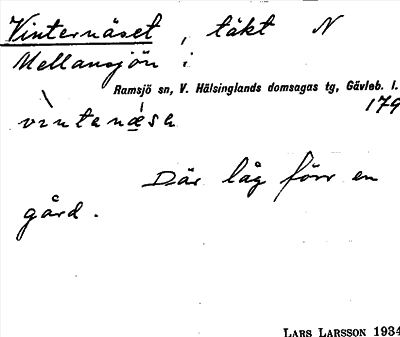 Vinternäset, täkt N
Mellansjön i
Ramsjö sn, V. Hälsinglands domsagas tg, Gävleb. l.
179
vìntenǽsɛ
Där låg förr en
gård.
LARS LARSSON 1934